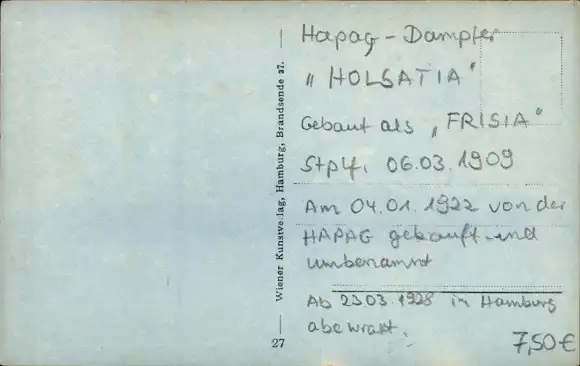 Hapag - Dampfer
„ HOLSATIA "
Gebaut als „FRISIA"
Stplf. 06.03.1909
Am 04.01.1922 von der
HAPAG gekauft und
umbenannt
Ab 23.03.1928 in Hamburg
abewrakt.
7,50€
— Wiener Kunstverlag, Hamburg, Brandsende 27. —
27